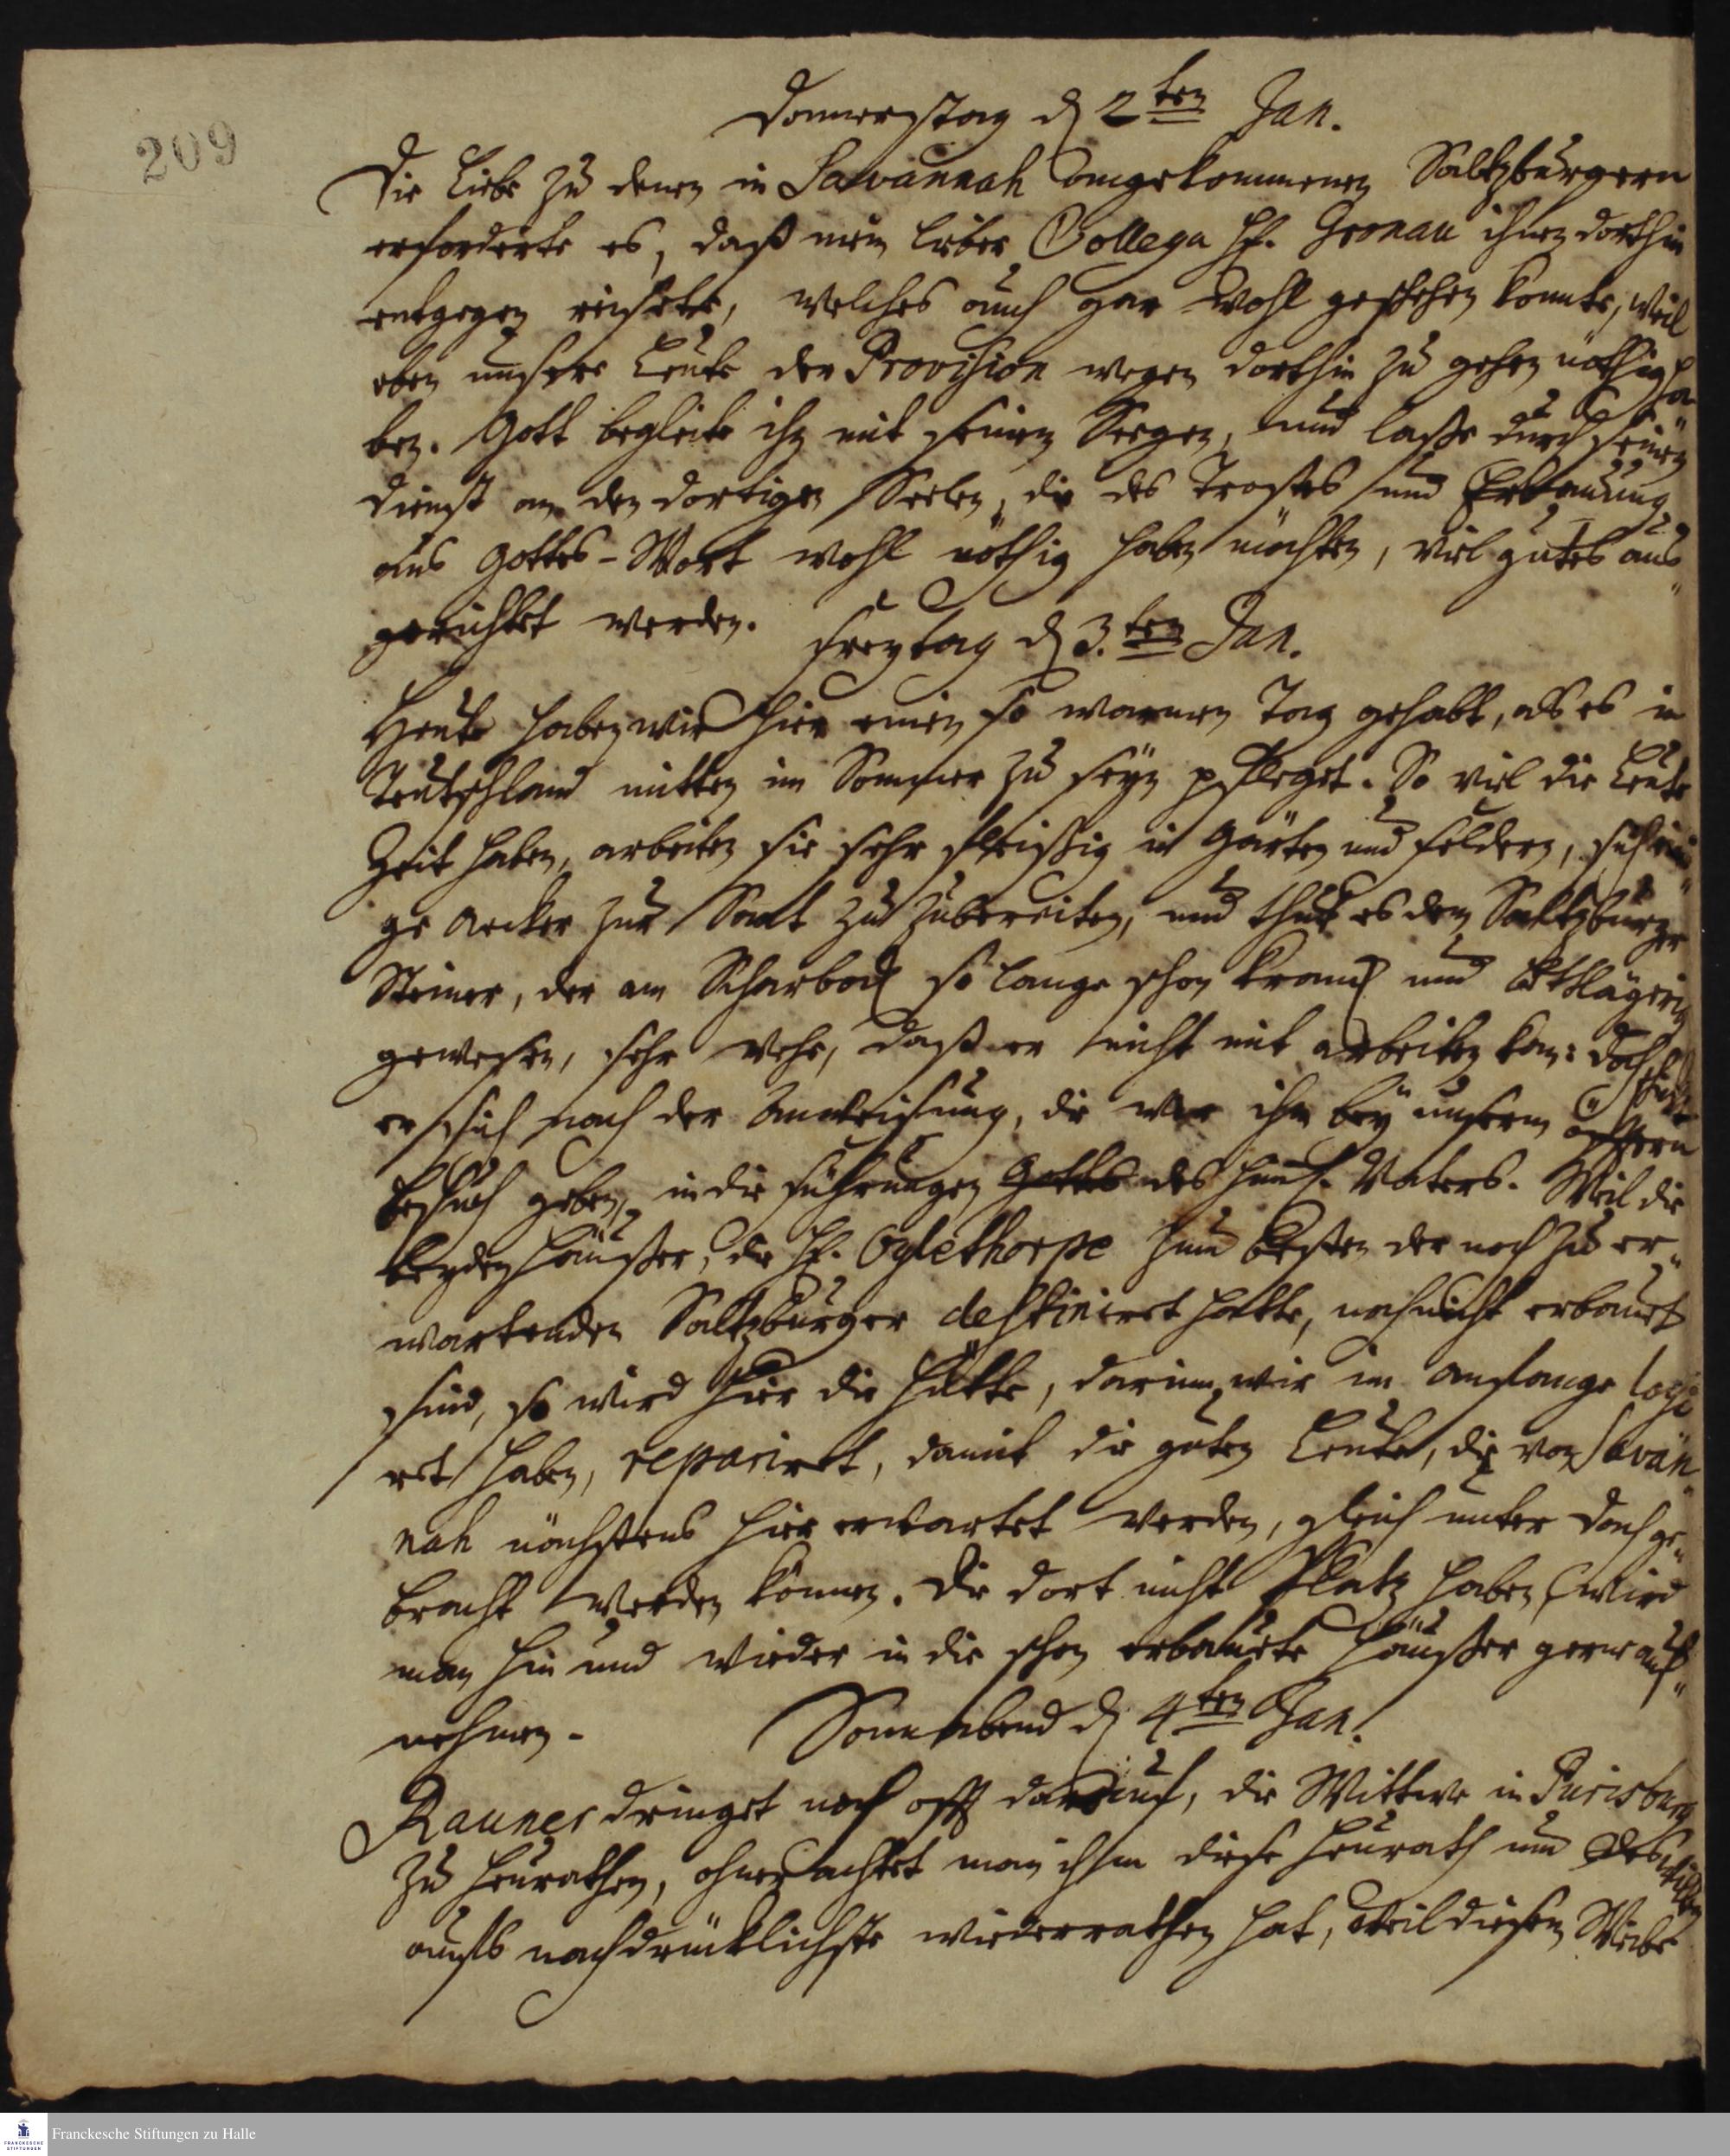 209
Donnerstag d. 2ten Jan.
Die Liebe zu denen in Savannah angekommenen Saltzburgern
erforderte es, daß mein lieber Collega H. Gronau ihnen dorthin
entgegen reisete, welches auch gar wohl geschehen konte, weil
eben unsere Leute der Provision wegen dorthin zu gehen nöthig ha„
ben. Gott begleite ihn mit seinem Seegen, und laße durch seinen
Dienst an den dortigen Seelen, die des Trostes und Erbauung
aus Gottes-Wort wohl nöthig haben möchten, viel gutes aus„
gerichtet werden.
Freytag d. 3.ten Jan.
Heute haben wir hier einen so warmen Tag gehabt, als es in
Teutschland mitten im Sommer zu seyn pfleget. So viel die Leute
Zeit haben, arbeiten sie sehr fleißig in Gärten und Feldern, sich eini„
ge Aecker zur Saat zu zubereiten, und thut es dem Saltzburger
Steiner, der am Scharbock so lange schon kranck und bettlägerig
gewesen, sehr wehe, daß er nicht mit arbeiten kan: doch schickt
er sich nach der Anweisung, die wir ihm bey unserm öfftern
Besuch geben, in die Führungen Gottes des himl. Vaters. Weil die
beyden Häußer, die H. Oglethorpe zum Besten der noch zu er„
wartenden Saltzburger destiniret hatte, noch nicht erbauet
sind, so wird hier die Hütte, darinn wir im Anfange logi„
ret haben, repariret, damit die guten Leute, die von Savan„
nah nächstens hier erwartet werden, gleich unter Dach ge„
bracht werden können. Die dort nicht Platz haben, wird
man hin und wieder in die schon erbauete Häußer gerne auf„
nehmen.
Sonnabend d. 4ten Jan.
Rauner dringet noch offt darauf, die Wittwe in Purisburg
zu heurathen, ohnerachtet man ihm diese Heurath um
aufs nachdrücklichste wiederrathen hat, weil diesem Weibe
Franckesche Stiftungen zu Halle
FRANCKESCHE
STIFTUNGEN